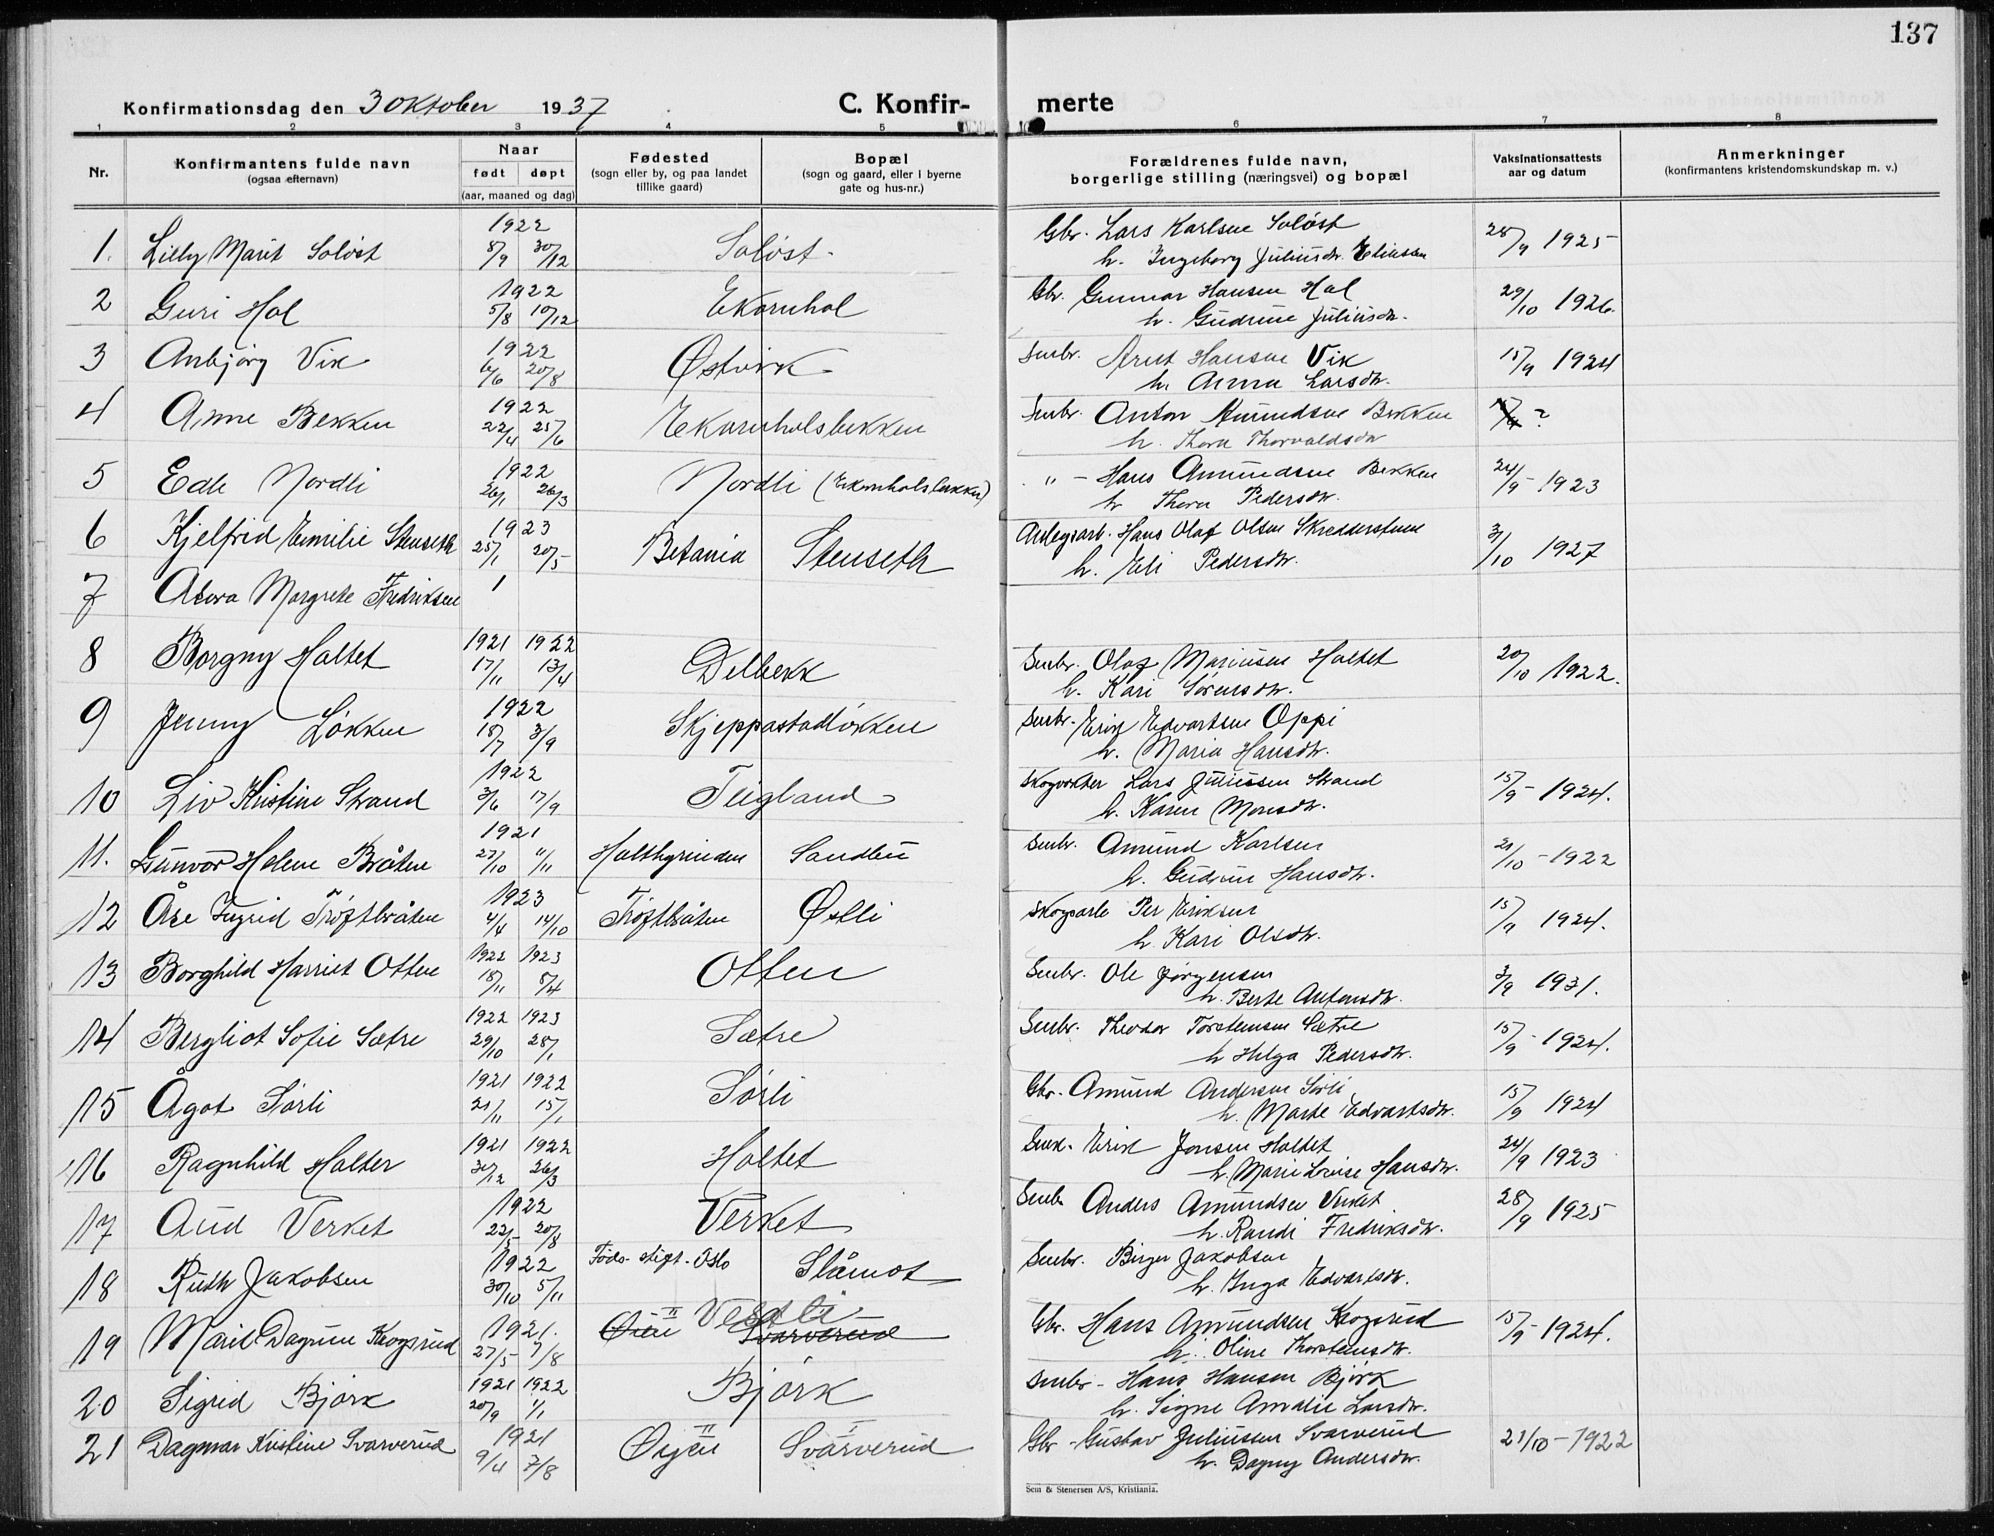 137
Konfirmationsdag den 3 Oktober 1937 C. Konfir- merte
1 2 3 4 5 6 7 8
Nr. Konfirmantens fulde navn (ogsaa efternavn) Naar født døpt (aar, maaned og dag) Fødested (sogn eller by, og paa landet tillike gaard) Bopæl (sogn og gaard, eller i byerne gate og hus-nr.) Forældrenes fulde navn, borgerlige stilling (næringsvei) og bopæl Vaksinationsattests aar og datum Anmerkninger (konfirmantens kristendomskundskap m. v.)
1. Lilly Marit Soløst 1922 8/9 30/12 Soløst Gbr. Lars Karlsen Soløst 28/9 1925
h. Ingeborg Juliusdr. Eliassen
2 Guri Hol 1922 5/8 10/12 Ekornhol Gbr. Gunnar Hansen Hol 29/10 1926
h. Gudrun Juliusdr.
3 Anbjørg Vik 1922 6/6 20/8 Østvik Smbr. Arnt Hansen Vik 15/9 1924
h. Anna Larsdr.
4 Anne Bekken 1922 22/4 25/6 Ekornholsbekken Smbr. Anton Amundsen Bekken ?
h. Thora Thorvaldsdr
5 Edle Nordli 1922 26/1 26/3 Nordli (Ekornholsbekken) " - Hans Amundsen Bekken 24/9 - 1923
h Thora Pedersdr.
6 Kjelfrid Emilie Stenseth 1923 25/1 20/5 Betania Stenseth Anlegsarb. Hans Olaf Olsen Skredderstuen 3/10 1927
h. Eli Pedersdr.
7 Margrete Fredriksen 1
8 Borgny Holtet 1921 1922 17/11 13/4 Delbekk Smbr. Olaf Mariusen Holtet 20/10 1922.
h. Kari Sørensdr.
9 Jenny Løkken 1922 18/7 3/9 Skjeppastadløkken Smbr. Erik Edvartsen Oppi
h. Maria Hansdr.
10 Liv Kristine Strand 1922 3/6 17/9 Teigland Skogvokter Lars Juliussen Strand 15/9 - 1924.
h. Karen Monsdr.
11. Gunvor Helene Bråten 1921 27/10 11/11 Holthyrinden Sandbu Smbr. Amund Karlsen 21/10 - 1922
h. Gudrun Hansdr.
12 Åse Ingrid Trøftbråten 1923 4/4 14/10 Trøftbråten Østli Skogsarb Per Eriksen 15/9 1924.
h. Kari Olsdr.
13 Borghild Harriet Otten 1922 1923 18/11 8/4 Otten Smbr. Ole Jørgensen 3/9 1931.
h. Berte Antonsdr.
14 Bergliot Sofie Sætre 1922 1923 29/10 28/1 Sætre Smbr. Theodor Torstensen Sætre 15/9 - 1924.
h Helga Pedersdr.
15 Ågot Sørli 1921 1922 21/11 15/1 Sørli Gbr. Amund Andersen Sørli 15/9 1924
h. Marte Edvartsdr.
16 Ragnhild Holter 1921 1922 30/12 26/3 Holtet Smbr. Erik Jonsen Holtet 24/9 1923
h. Marie Lovise Hansdr.
17 Aud Verket 1922 22/5 20/8 Verket Smbr Anders Amundsen Verket 28/9 1925
h. Randi Fredriksdr.
18 Ruth Jakobsen 1922 30/10 5/11 Føds. stift. Oslo Slåmot Smbr. Birger Jakobsen
h. Inga Edvartsdr.
19 Marit Dagrun Krogsrud 1921. 27/5 7/8 Øien Vestli Svarverud Gbr. Hans Amundsen Krogsrud 15/9 - 1924.
h. Oline Thorstensdr.
20 Sigrid Bjørk 1921 1922 20/9 1/1 Bjørk Smbr - Hans Hansen Bjørk
h. Signe Amalie Larsdr.
21 Dagmar Kristine Svarverud 1921 9/4 7/8 Øyen Svarverud Gbr - Gustav Juliussen Svarverud 21/10 - 1922
h. Dagny Andersdr.
Sem & Stenersen A/S, Kristiania.